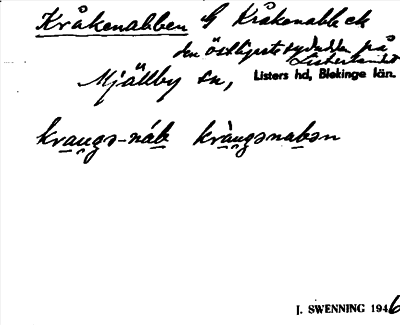 Kråkenabben
Kråkenabb ck
den östligaste sydudden på
Listerlandet
Mjällby sn, Listers hd, Blekinge län.
krangs-náb kràngsnabən
J. SWENNING 1946